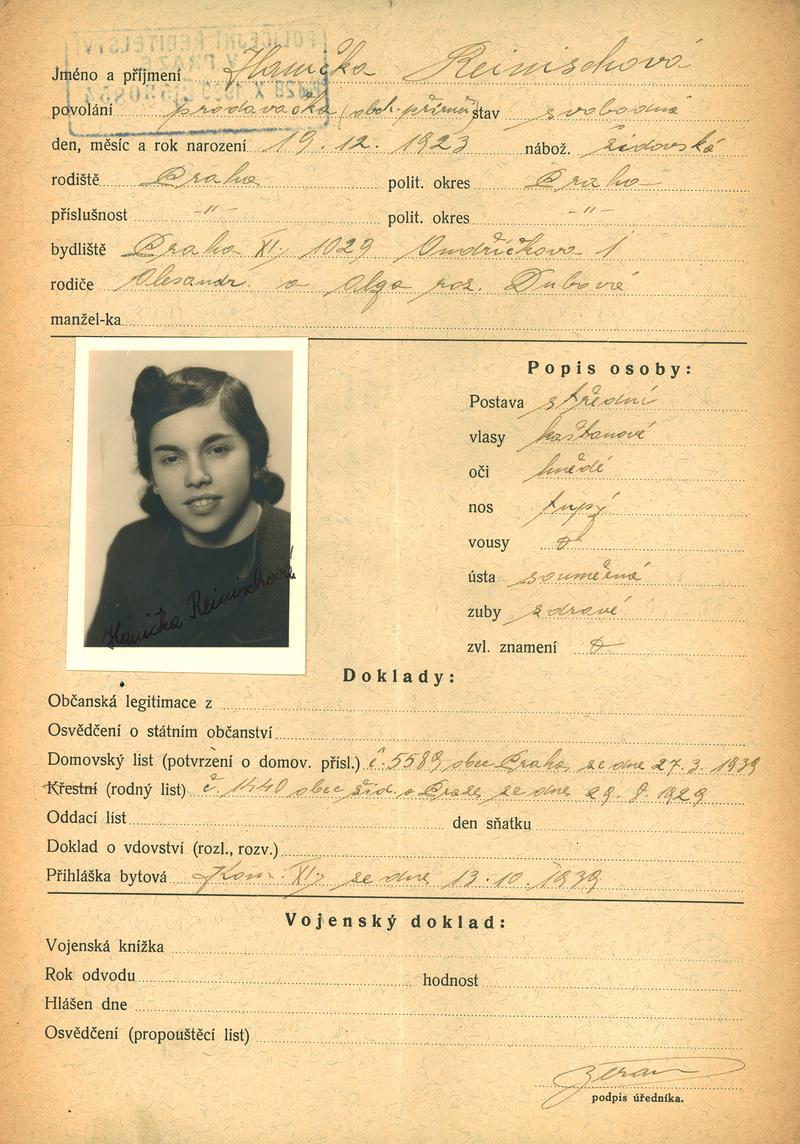 Jméno a příjmení Hanička Reinischová
povolání prodavačka (obch. příruč) stav svobodná
den, měsíc a rok narození 19. 12. 1923 nábož. židovská
rodiště Praha polit. okres Praha
příslušnost -"- polit. okres -"-
bydliště Praha XI., 1029 Ondříčkova 1
rodiče Alexandr a Olga roz. Dubová
manžel-ka
Popis osoby:
Postava střední
vlasy kaštanové
oči hnědé
nos tupý
vousy
ústa souměrná
zuby zdravé
zvl. znamení
Hanička Reinischová
Doklady:
Občanská legitimace z
Osvědčení o státním občanství
Domovský list (potvrzení o domov. přísl.) č. 5589 obec Praha, ze dne 27. 3. 1939
Křestní (rodný list) č. 1440 obec žid. v Praze, ze dne 29. 8. 1929
Oddací list den sňatku
Doklad o vdovství (rozl., rozv.)
Přihláška bytová Kom. XI., ze dne 13. 10. 1939
Vojenský doklad:
Vojenská knížka
Rok odvodu hodnost
Hlášen dne
Osvědčení (propouštěcí list)
podpis úředníka.